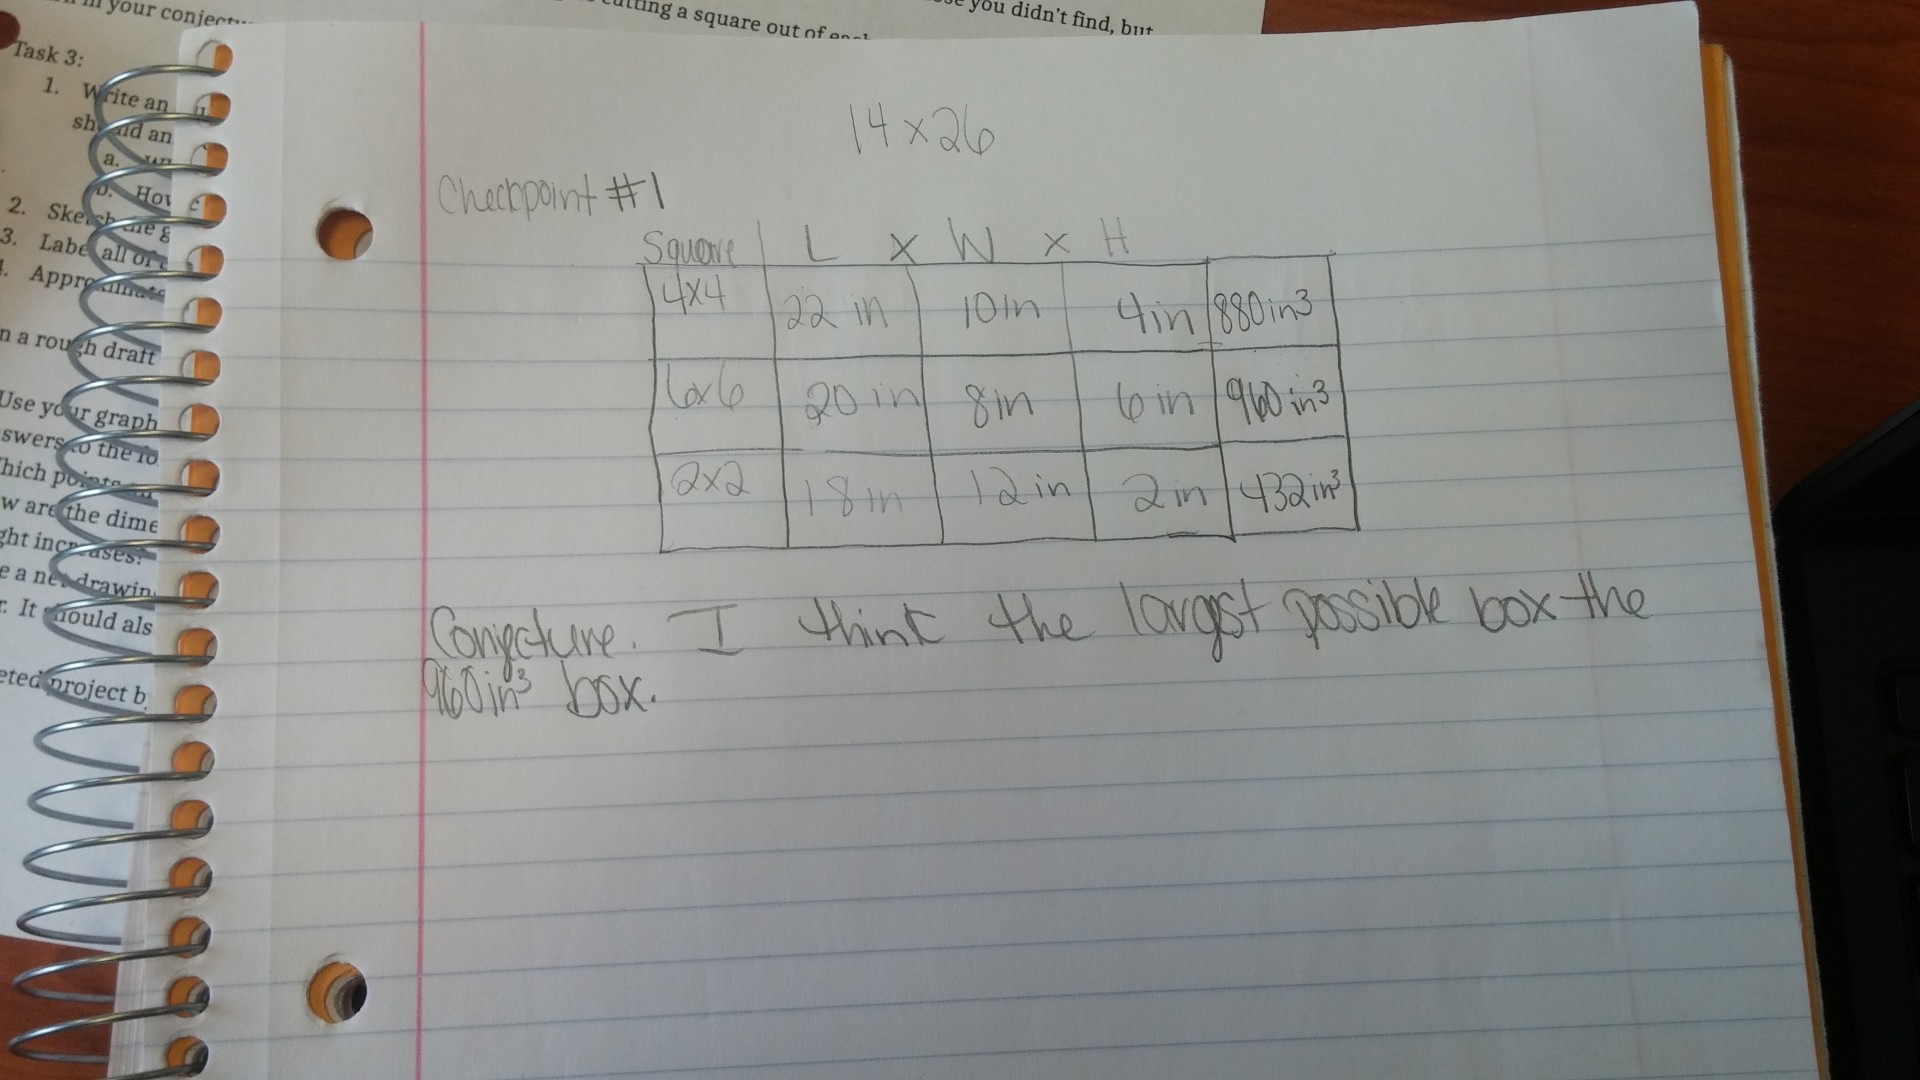 in your conjectu
cutting a square out of each
you didn't find, but
Task 3:
1. Write an
should an
a.
b. How
2. Sketch the g
3. Label all of
Approximate
n a rough draft
Use your graph
swers to the fo
hich points
w are the dime
ght increases?
e a net drawin
r. It should als
eted project b
14 x 26
Checkpoint #1
Square L x W x H
4x4 22 in 10in 4in 880in³
6x6 20 in 8in 6in 960in³
2x2 18in 12in 2in 432in³
Conjecture. I think the largest possible box the
960in³ box.